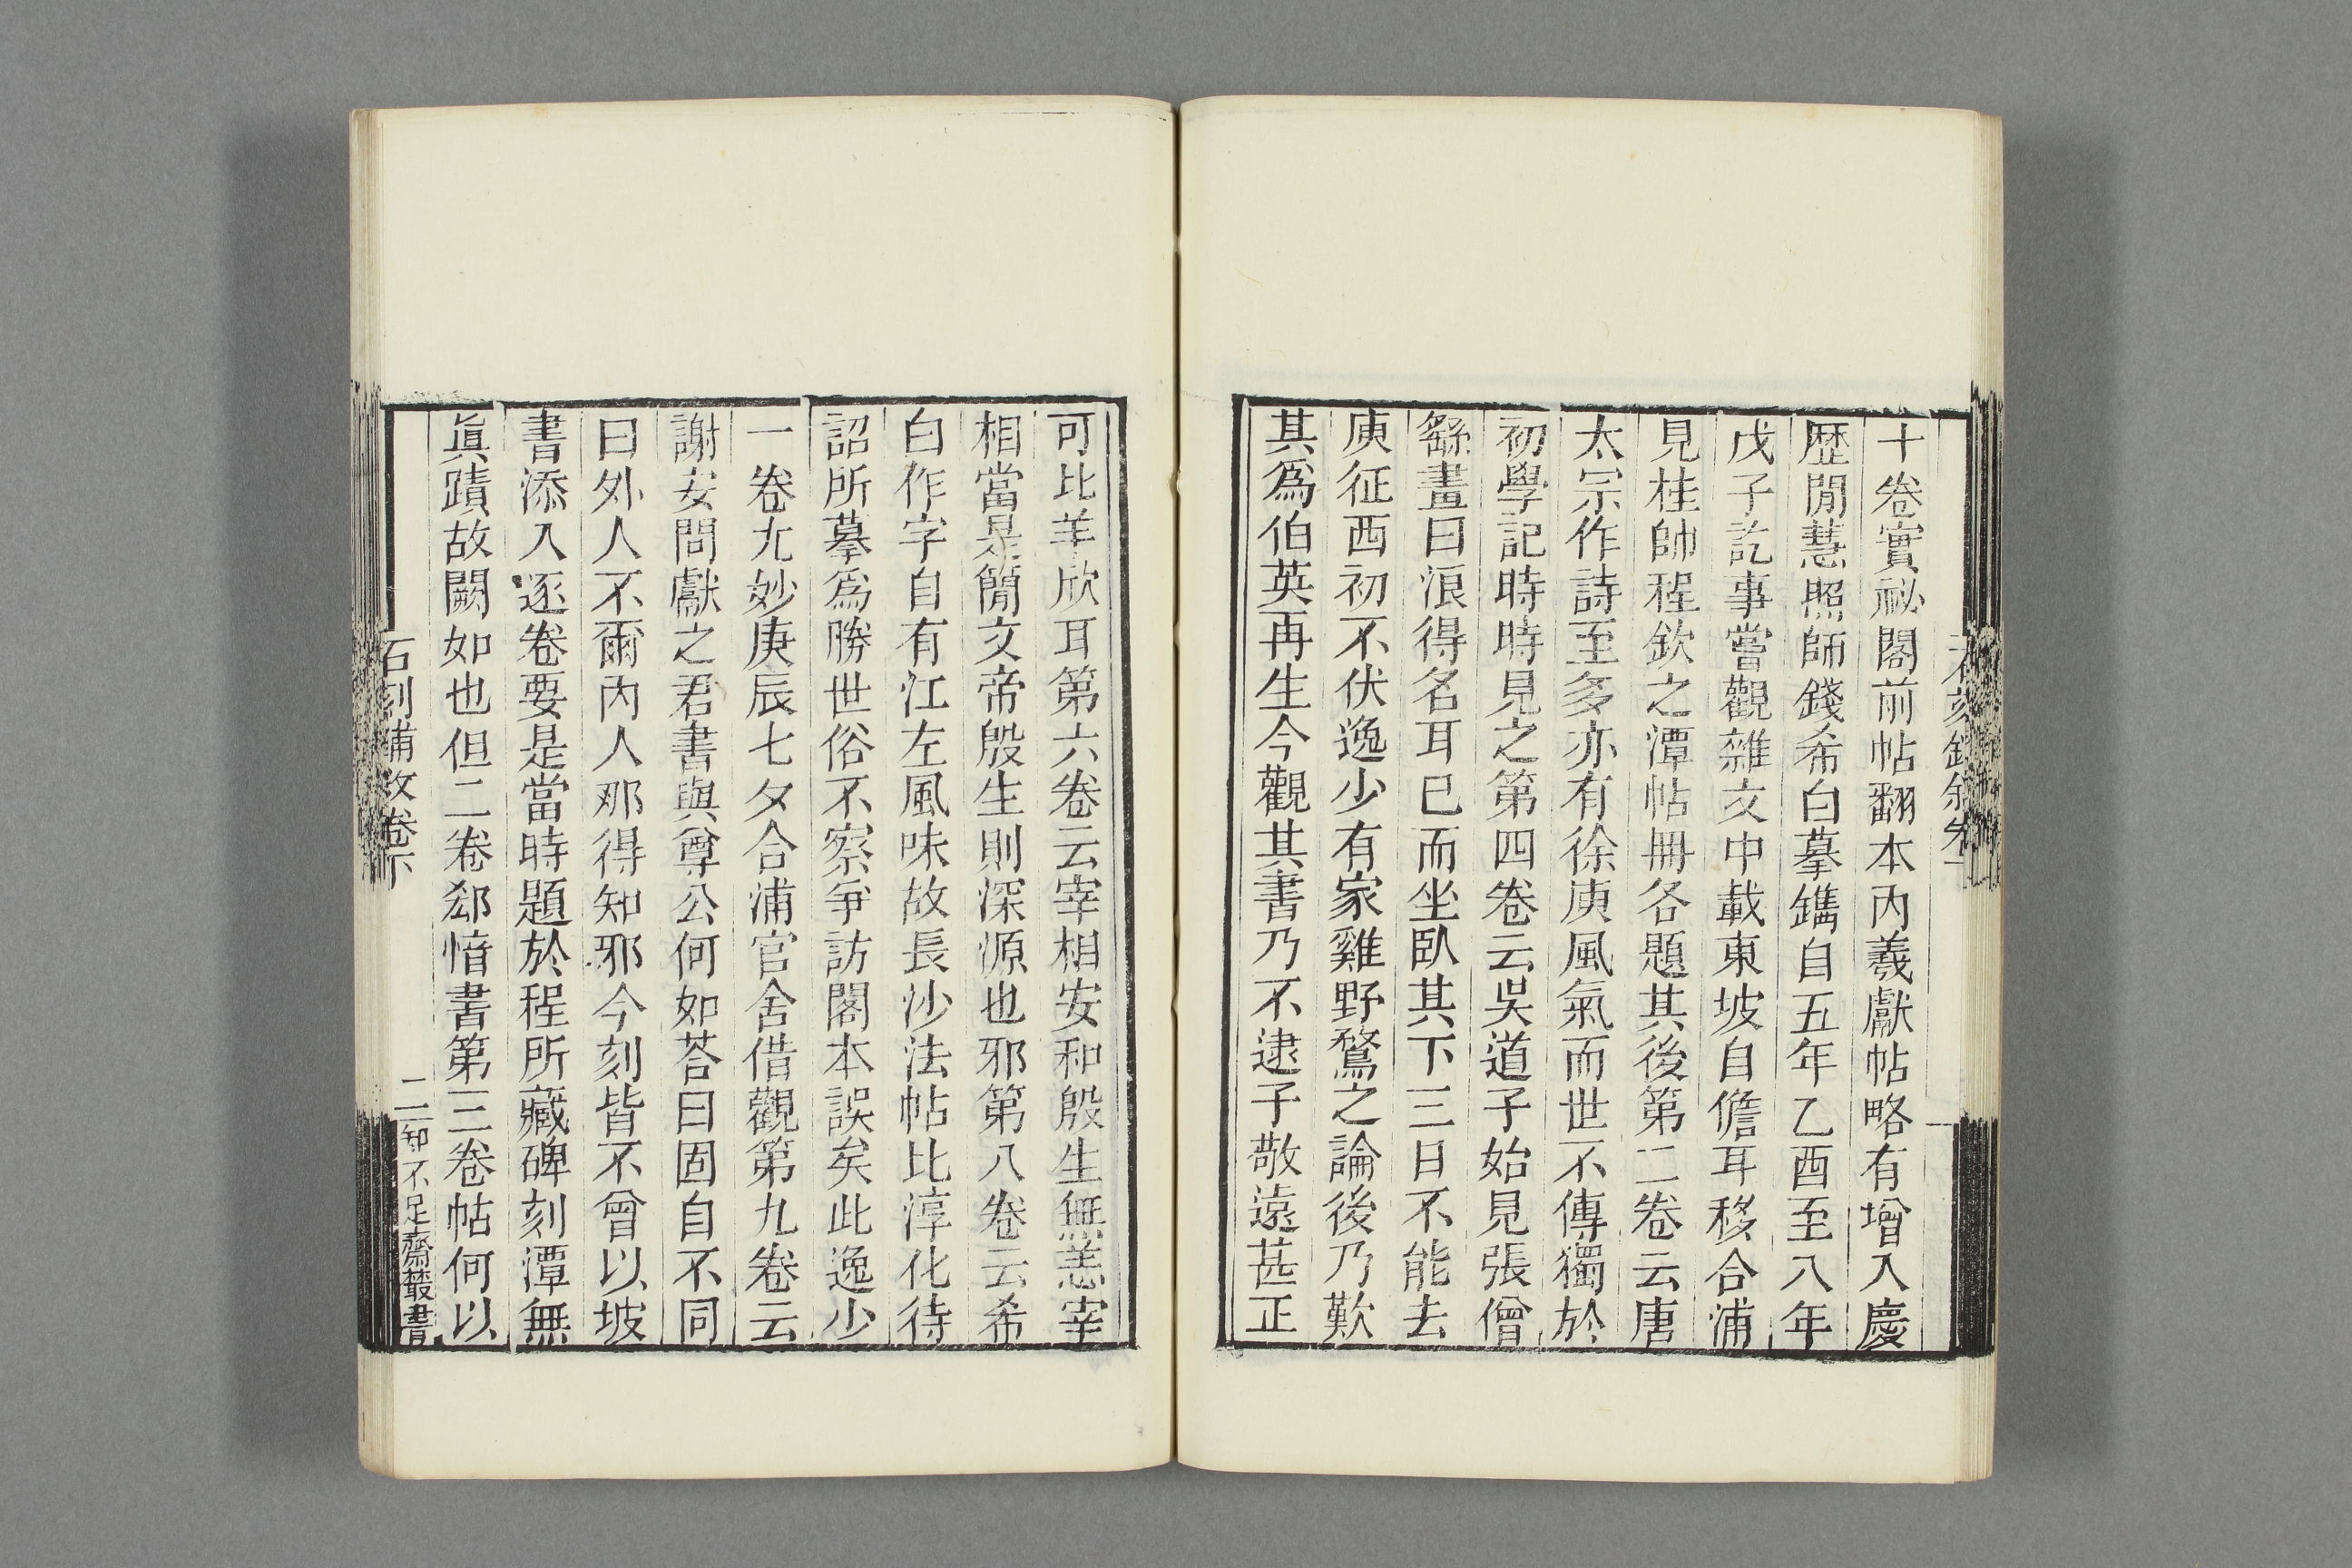 十卷實祕閣前帖翻本内羲獻帖略有增入慶
歴閒慧照師錢希白摹鐫自五年乙酉至八年
戊子訖事嘗觀雜文中載東坡自儋耳移合浦
見桂帥程欽之潭帖冊各題其後第二卷云唐
太宗作詩至多亦有徐庾風氣而世不傳獨於
初學記時時見之第四卷云吳道子始見張僧
繇畫曰浪得名耳已而坐臥其下三日不能去
庾征西初不伏逸少有家雞野鶩之論後乃歎
其爲伯英再生今觀其書乃不逮子敬遠甚正
可比羊欣耳第六卷云宰相安和殷生無恙宰
相當是簡文帝殷生則深源也邪第八卷云希
白作字自有江左風味故長沙法帖比淳化待
詔所摹爲勝世俗不察爭訪閣本誤矣此逸少
一卷尤妙庚辰七夕合浦官舍借觀第九卷云
謝安問獻之君書與尊公何如荅曰固自不同
曰外人不爾内人那得知邪今刻皆不曾以坡
書添入逐卷要是當時題於程所藏碑刻潭無
眞蹟故闕如也但二卷郄愔書第三卷帖何以
石刻鋪敘卷下
二
知不足齋叢書